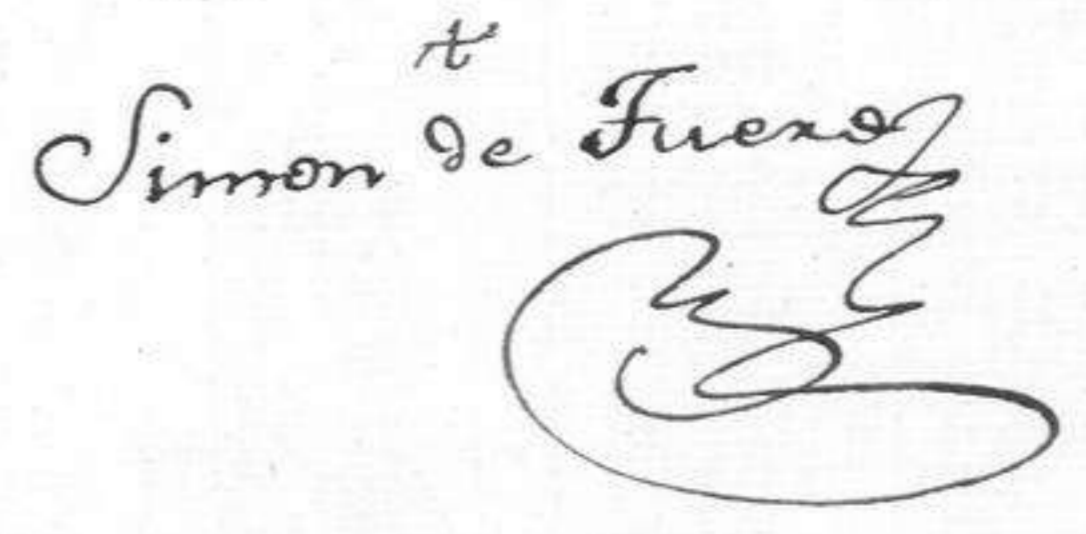 Simon de Fuero